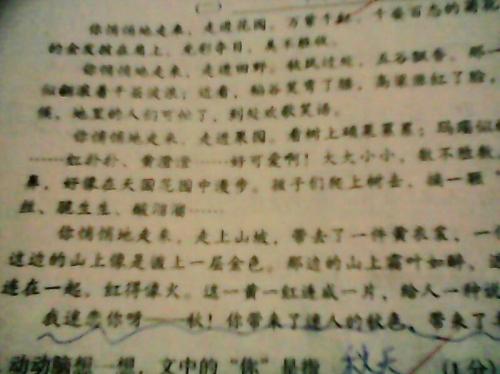 (二)
你悄悄地走来，走进花园。万紫千红、千姿百态的菊花
的金发披在肩上，光彩夺目，美不胜收。
你悄悄地走来，走进田野。秋风过处，五谷飘香。那一
似翻滚着千层波浪；近看，稻谷笑弯了腰，高粱涨红了脸，
地里的人们可忙了，到处欢歌笑语。
你悄悄地走来，走进果园。看树上硕果累累：玛瑙似
……红扑扑、黄澄澄……好可爱啊！大大小小，数不胜数
鼻，好像在天国花园中漫步。孩子们爬上树去，摘一颗
丝、脆生生、酸溜溜……
你悄悄地走来，走上山坡，带去了一件黄衣裳，一
这边的山上像是披上一层金色。那边的山上霜叶如醉，
连在一起，红得像火。这一黄一红连成一片，给人一种
我迷恋你呀——秋！你带来了迷人的秋色，带来了
动动脑想一想，文中的“你”是指 秋天 (1分)